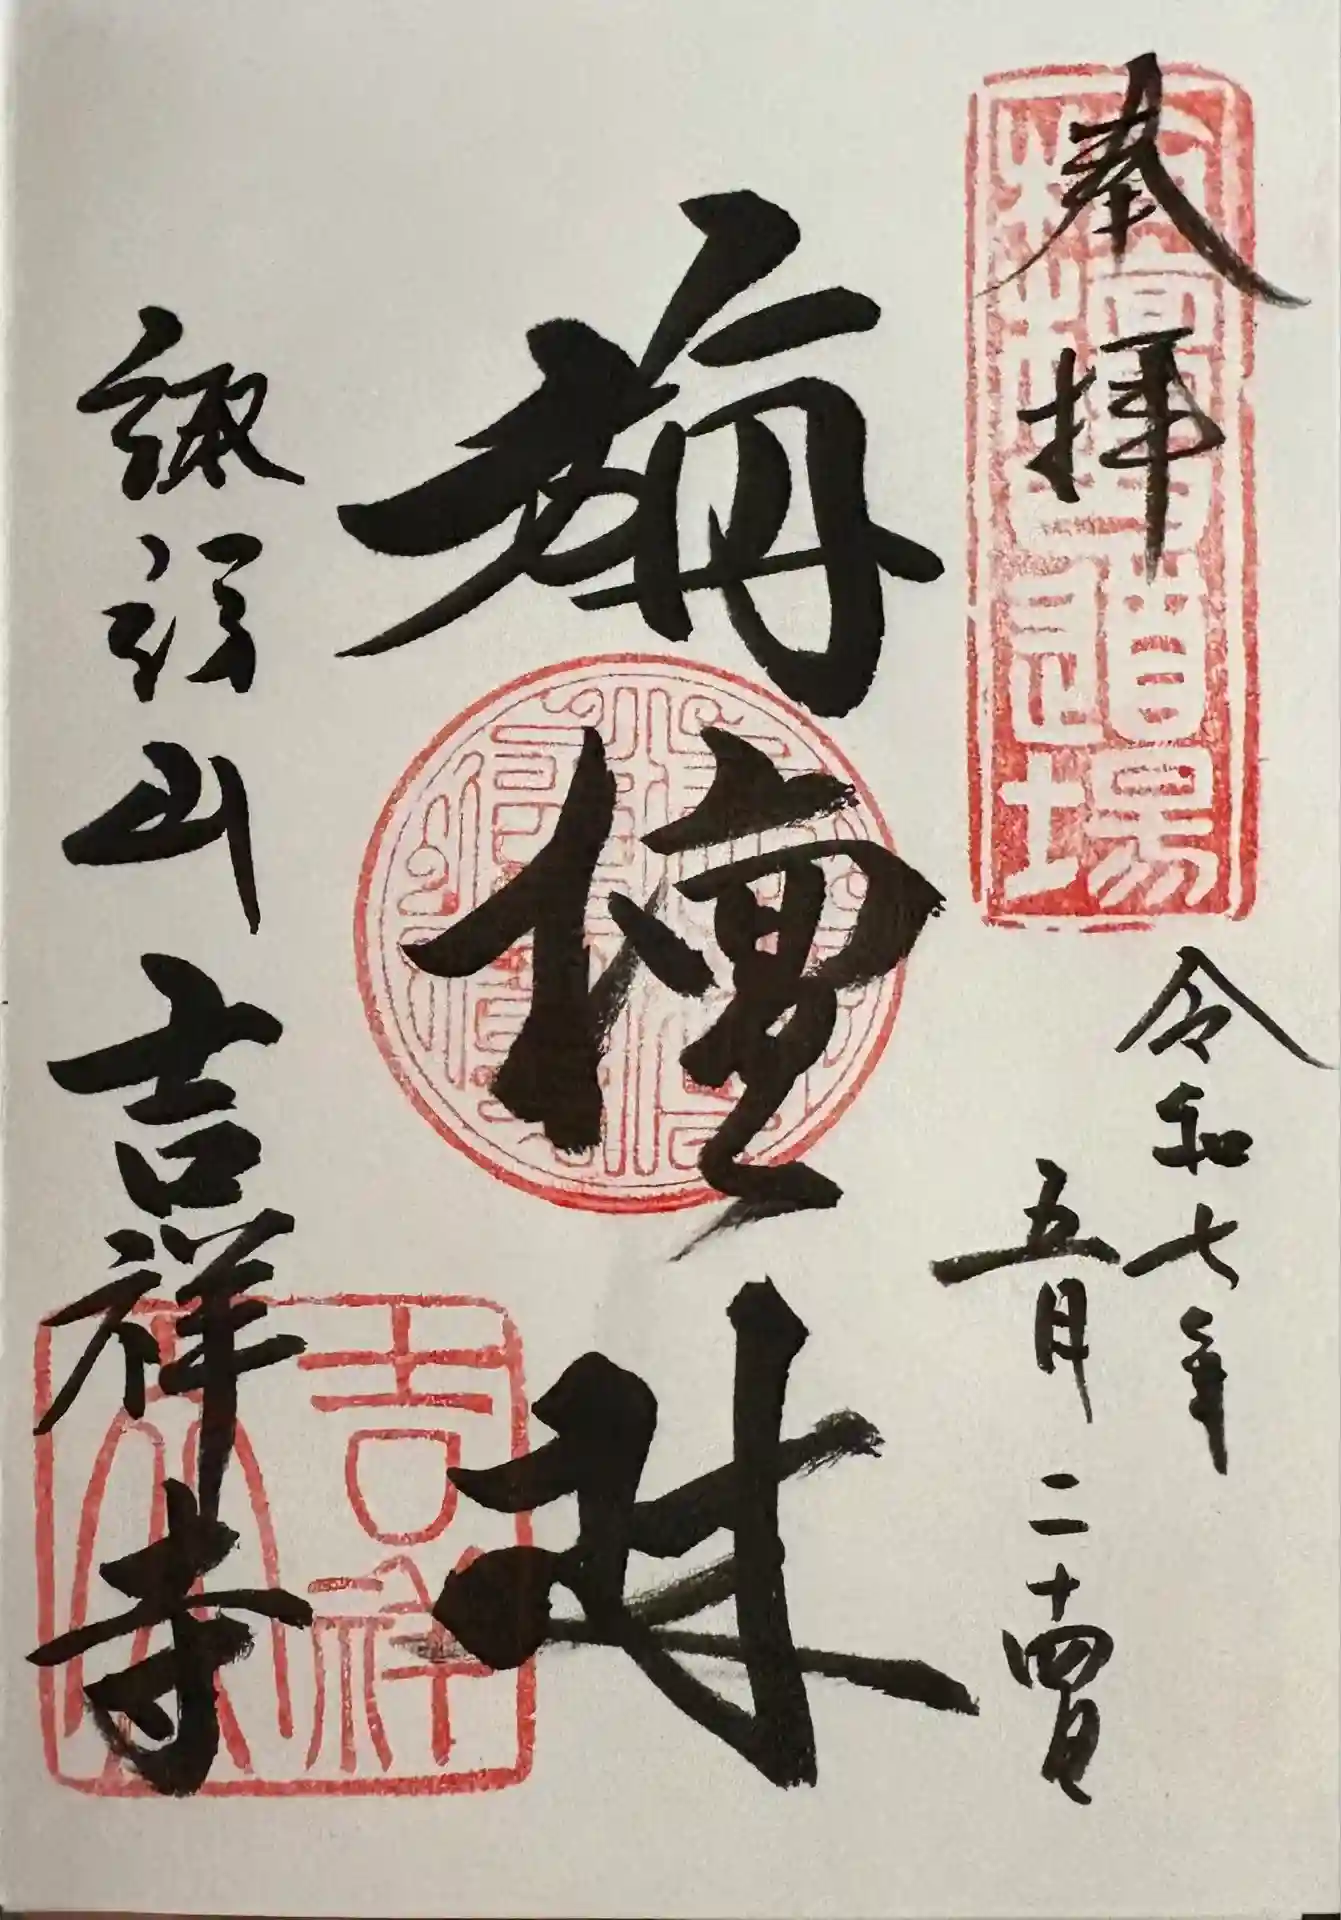 奉拝
令和七年
五月二十四日
旃檀林
諏訪山吉祥寺
吉祥